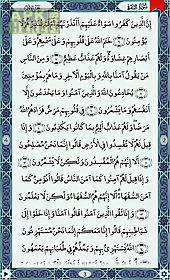 إِنَّ الَّذِينَ كَفَرُوا سَوَاءٌ عَلَيْهِمْ أَأَنذَرْتَهُمْ أَمْ لَمْ تُنذِرْهُمْ لَا
يُؤْمِنُونَ خَتَمَ اللَّهُ عَلَى قُلُوبِهِمْ وَعَلَى سَمْعِهِمْ وَعَلَى
أَبْصَارِهِمْ غِشَاوَةٌ وَلَهُمْ عَذَابٌ عَظِيمٌ وَمِنَ النَّاسِ
مَن يَقُولُ آمَنَّا بِاللَّهِ وَبِالْيَوْمِ الْآخِرِ وَمَا هُم بِمُؤْمِنِينَ
يُخَادِعُونَ اللَّهَ وَالَّذِينَ آمَنُوا وَمَا يَخْدَعُونَ إِلَّا
أَنفُسَهُمْ وَمَا يَشْعُرُونَ فِي قُلُوبِهِم مَّرَضٌ فَزَادَهُمُ اللَّهُ
مَرَضًا وَلَهُمْ عَذَابٌ أَلِيمٌ بِمَا كَانُوا يَكْذِبُونَ وَإِذَا
قِيلَ لَهُمْ لَا تُفْسِدُوا فِي الْأَرْضِ قَالُوا إِنَّمَا نَحْنُ مُصْلِحُونَ
أَلَا إِنَّهُمْ هُمُ الْمُفْسِدُونَ وَلَكِن لَّا يَشْعُرُونَ وَإِذَا
قِيلَ لَهُمْ آمِنُوا كَمَا آمَنَ النَّاسُ قَالُوا أَنُؤْمِنُ كَمَا
آمَنَ السُّفَهَاءُ أَلَا إِنَّهُمْ هُمُ السُّفَهَاءُ وَلَكِن لَّا يَعْلَمُونَ
وَإِذَا لَقُوا الَّذِينَ آمَنُوا قَالُوا آمَنَّا وَإِذَا خَلَوْا إِلَى
شَيَاطِينِهِمْ قَالُوا إِنَّا مَعَكُمْ إِنَّمَا نَحْنُ مُسْتَهْزِئُونَ
اللَّهُ يَسْتَهْزِئُ بِهِمْ وَيَمُدُّهُمْ فِي طُغْيَانِهِمْ يَعْمَهُونَ